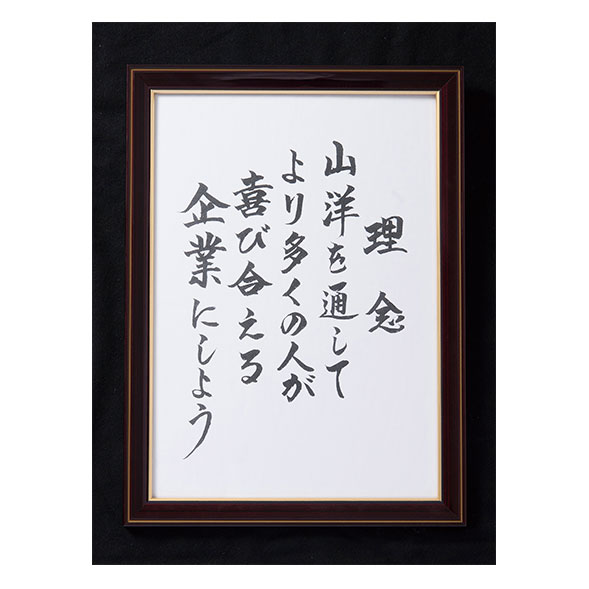 理念
山洋を通して
より多くの人が
喜び合える
企業にしよう